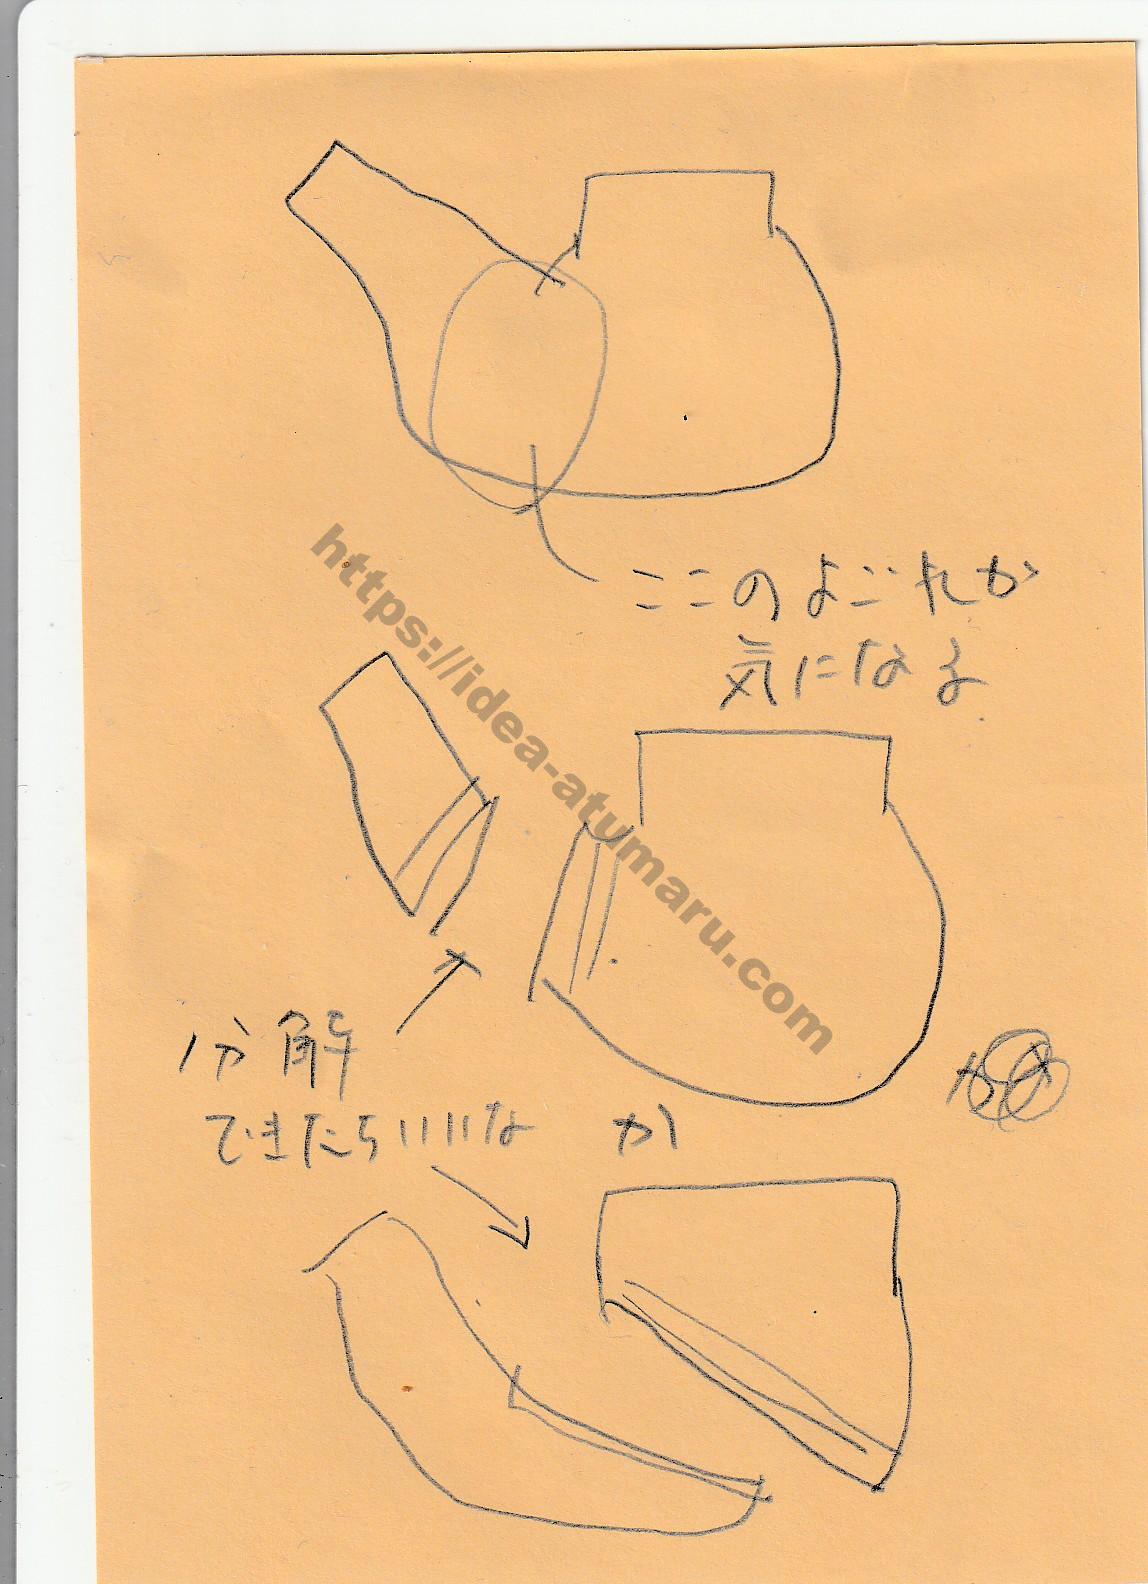 ここのよごれが
気になる
https://idea-atumaru.com
分解
できたらいいな
か